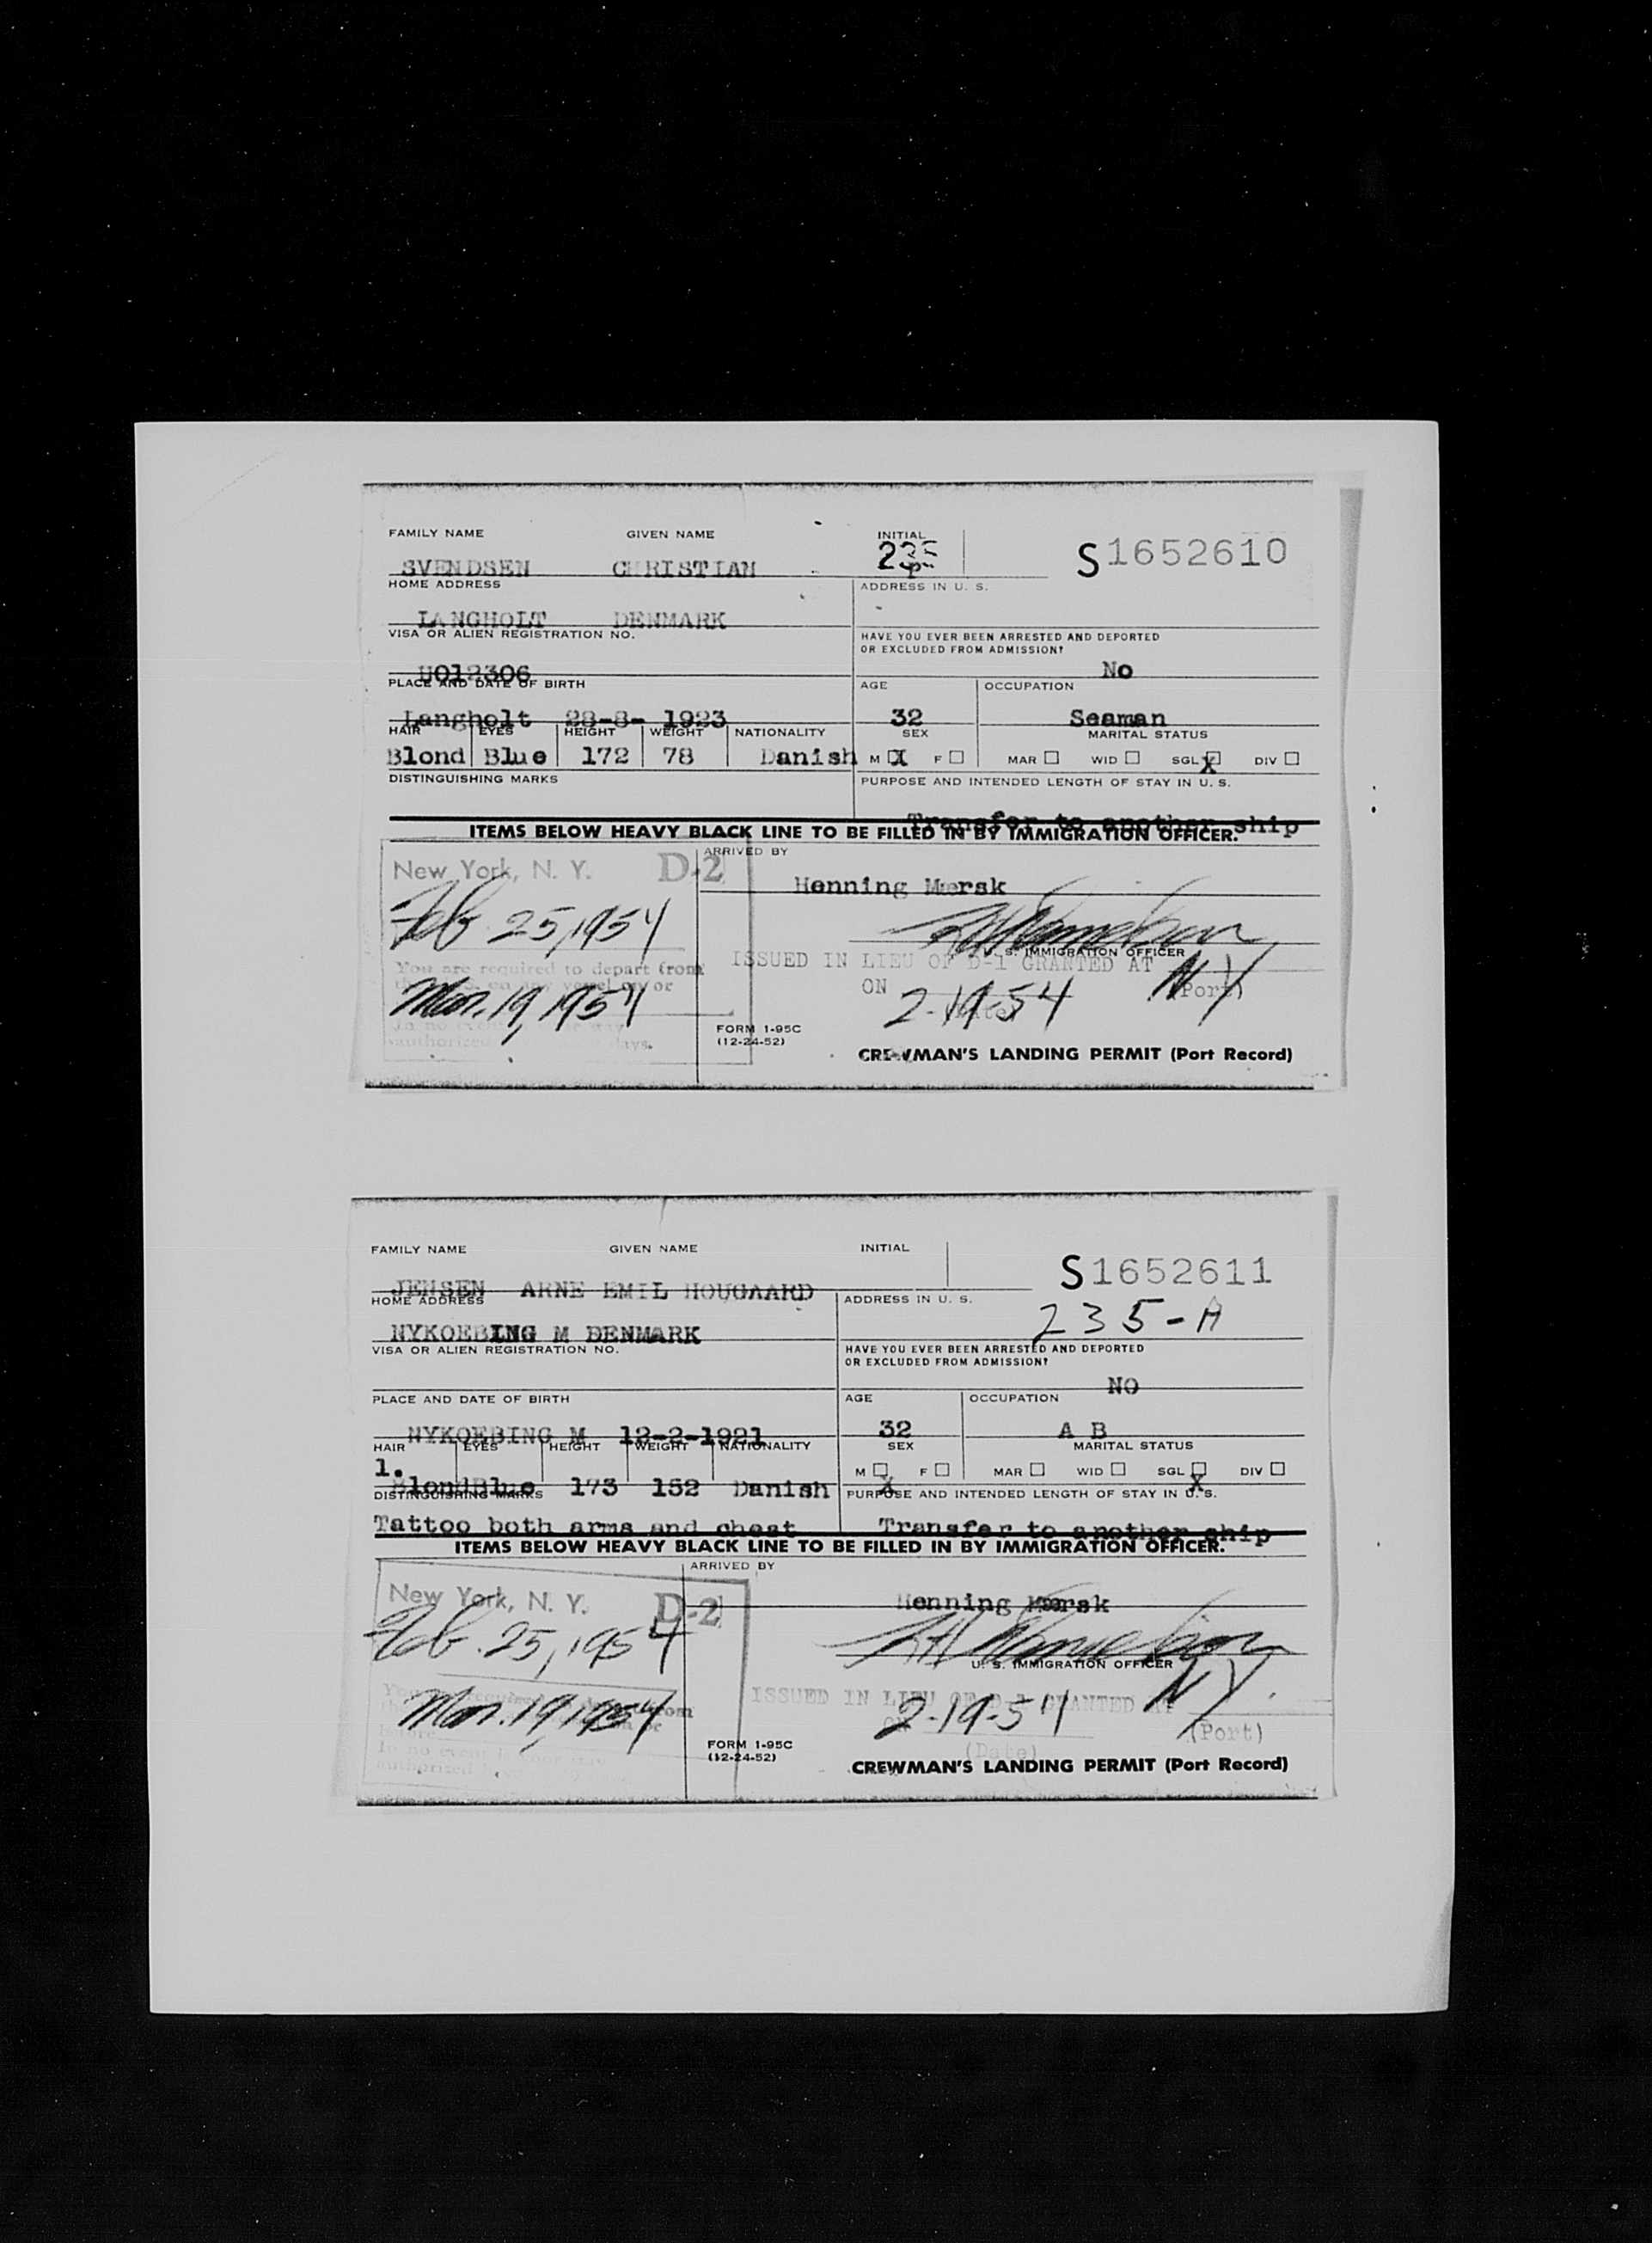 FAMILY NAME GIVEN NAME INITIAL
SVENDSEN CHRISTIAN S1652610
HOME ADDRESS ADDRESS IN U. S.
LANGHOLT DENMARK
VISA OR ALIEN REGISTRATION NO. HAVE YOU EVER BEEN ARRESTED AND DEPORTED
OR EXCLUDED FROM ADMISSION?
U012306 No
PLACE AND DATE OF BIRTH AGE OCCUPATION
Langholt 28-8- 1923 32 Seaman
HAIR EYES HEIGHT WEIGHT NATIONALITY SEX MARITAL STATUS
Blond Blue 172 78 Danish M X F MAR WID SGL X DIV
DISTINGUISHING MARKS PURPOSE AND INTENDED LENGTH OF STAY IN U. S.
Transfer to another ship
ITEMS BELOW HEAVY BLACK LINE TO BE FILLED IN BY IMMIGRATION OFFICER.
New York, N. Y. D-2 ARRIVED BY
Henning Mærsk
Feb 25, 1954
U. S. IMMIGRATION OFFICER
You are required to depart from ISSUED IN LIEU OF D-1 GRANTED AT N Y
on any vessel on or ON 2-19-54 (Port)
Mar. 19, 1954
In no event
authorized days.
FORM 1-95C
(12-24-52)
CREWMAN'S LANDING PERMIT (Port Record)
FAMILY NAME GIVEN NAME INITIAL
JENSEN ARNE EMIL HOUGAARD S1652611
HOME ADDRESS ADDRESS IN U. S.
235-A
NYKOEBING M DENMARK
VISA OR ALIEN REGISTRATION NO. HAVE YOU EVER BEEN ARRESTED AND DEPORTED
OR EXCLUDED FROM ADMISSION?
NO
PLACE AND DATE OF BIRTH AGE OCCUPATION
NYKOEBING M 12-2-1921 32 A B
HAIR EYES HEIGHT WEIGHT NATIONALITY SEX MARITAL STATUS
1. M F MAR WID SGL DIV
Blond Blue 173 152 Danish X X
DISTINGUISHING MARKS PURPOSE AND INTENDED LENGTH OF STAY IN U. S.
Tattoo both arms and chest Transfer to another ship
ITEMS BELOW HEAVY BLACK LINE TO BE FILLED IN BY IMMIGRATION OFFICER.
ARRIVED BY
New York, N. Y. D-2 Henning Mærsk
Feb. 25, 1954
U. S. IMMIGRATION OFFICER
ISSUED IN LIEU OF D-1 GRANTED AT N Y.
Mar. 19, 1954 ON 2-19-54 (Port)
(Date)
In no event
authorized
FORM 1-95C
(12-24-52)
CREWMAN'S LANDING PERMIT (Port Record)